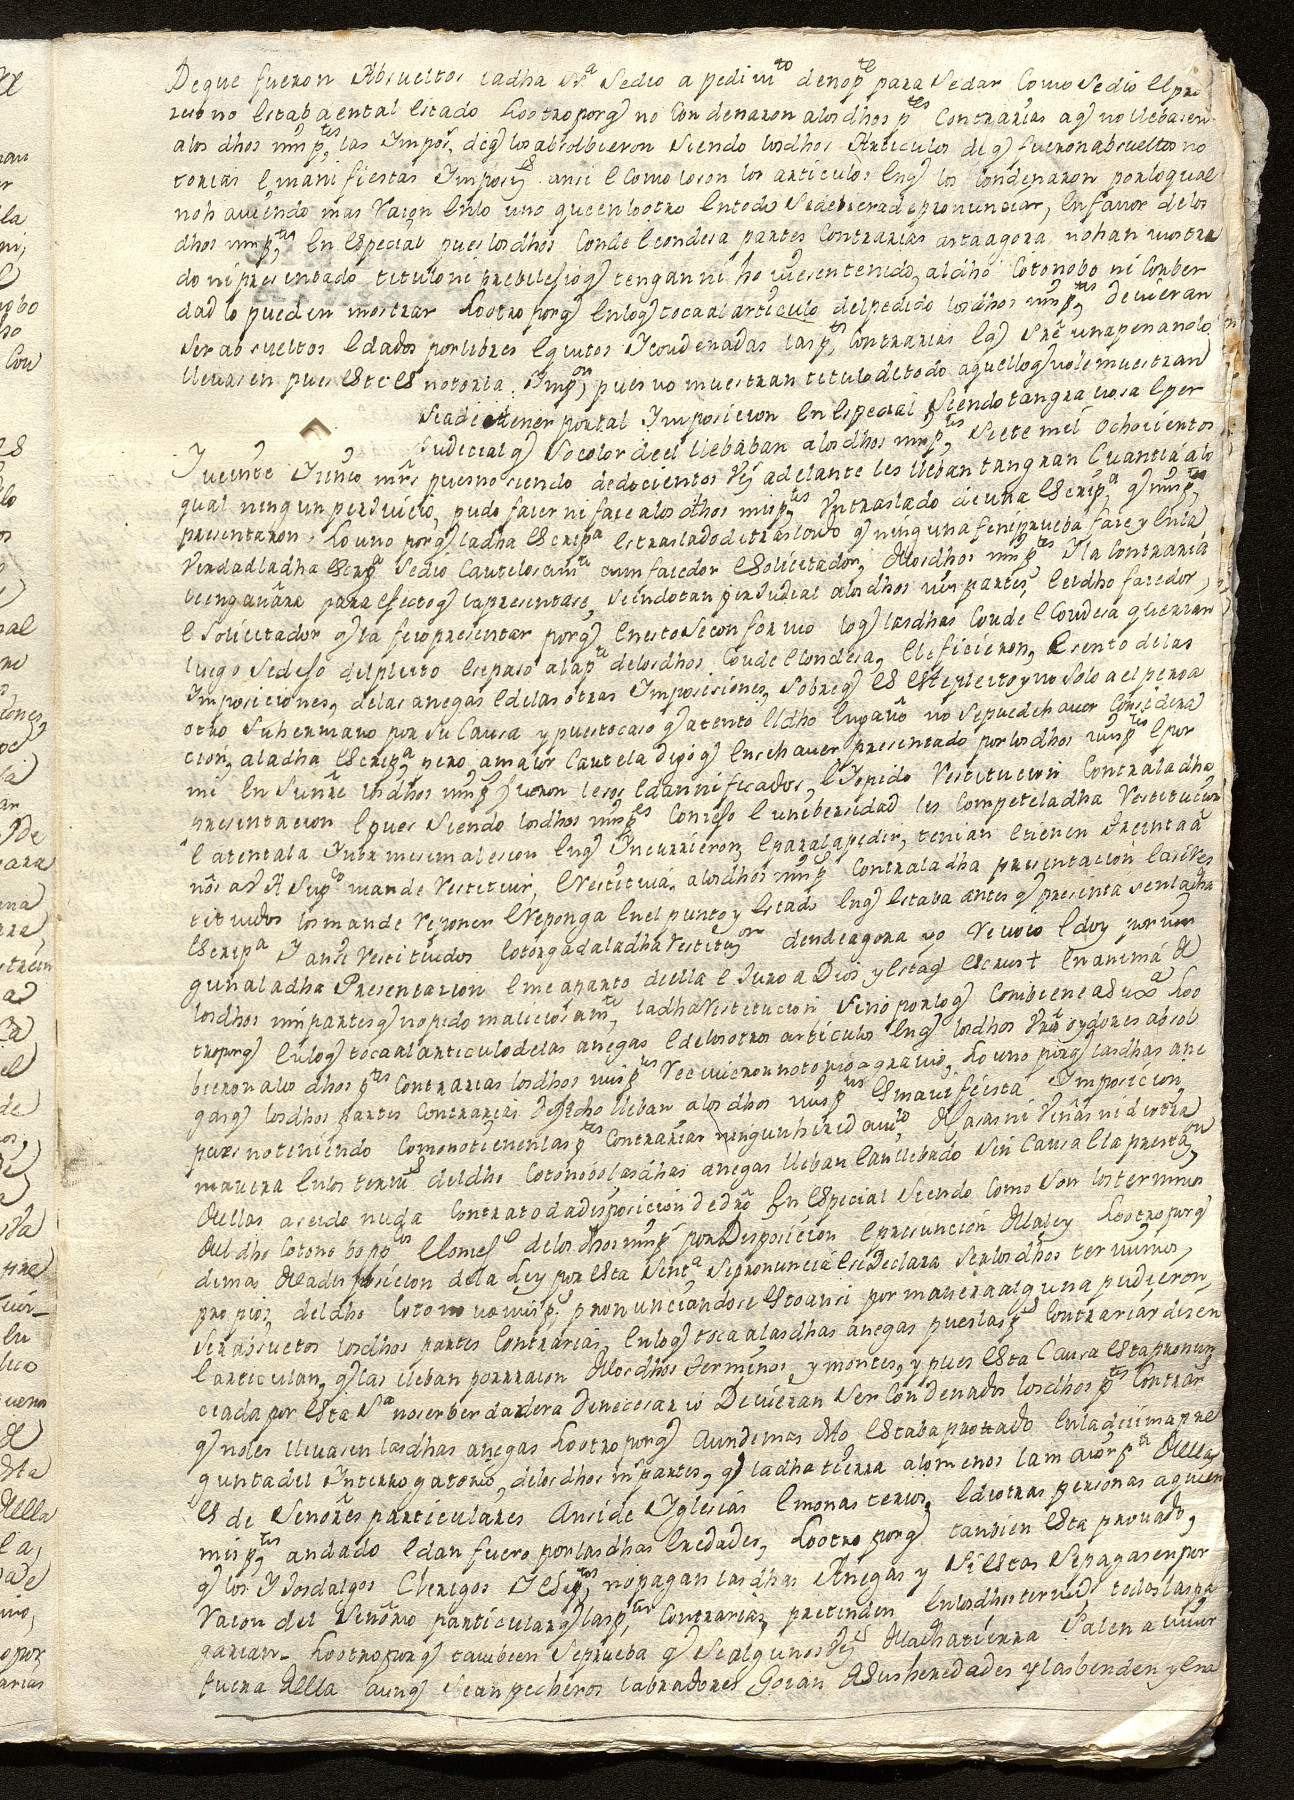 De que fueron Absueltos ladha Sª Sedio a pedimto denopte para Sedar Como Sedio El pro
ruo no Estaba ental Estado Lo otro porq no Condenaron alos dhos ptes Contrarias aq no llebasen
alos dhos mis ptes las Imposs, deq los absolbieron Siendo los dhos Articulos de q fueron absueltos no
torias E manifiestas Imposis ansi E como lo son los articulos Enq los Condenaron por lo qual
no haviendo mas Raçon En lo uno que en lo otro En todo Se debiera de pronunciar, En favor de los
dhos mis ptes En Especial pues los dhos Conde E condesa partes Contrarias asta agora no han mostra
do ni presentado titulo ni prebilesio q tengan ni ho viesen tenido, al dho Cotonobo ni Con ber
dad lo pueden mostrar Lo otro porq En loq toca al articulo del pedido los dhos mis ptes devieran
Ser absueltos E dados por libres E quitos I condenadas las ptes Contrarias Eq Sre una pena no lo
llevasen pues Este Es notoria Impon, pues no muestran titulo de todo aquello q se le muestran
Seadi tener por tal Imposicion En Especial Siendo tan gravosa E per
judicial q So color de el llebaban alos dhos mis ptes Siete mil Ochocientos
I veinte I cinco mrs pues no Siendo de docientos Rs adelante les lleban tan gran Cuantia alo
qual ningun perjuicio, pudo facer ni face alos dhos mis ptes Untraslado de una Escripª q mis ptes
presentaron, Lo uno porq la dha Escripª Es traslado de traslado q ninguna fe ni prueba face y En la
Verdad la dha Escripª Sedio Cautelosamte a un facedor E Solicitador, de los dhos mis ptes I la Contraria
le engañara para Efecto q la presentase, Siendo tan perjudicial alos dhos mis partes El dho facedor,
E Solicitador q la fiço presentar porq En esto Se conformo loq los dhos Conde E Condesa querian
luego Se deso del pleito E se paso ala pte de los dhos, Conde E Condesa, E le ficieron, Esento de las
Imposiciones, de las anegas E de las otras Imposisiones, Sobre q Es Este pleito y no solo a el pero a
otro Su hermano por Su Causa y puesto caso q atento El dho Engaño no Se puede haver Considera
cion, ala dha Escripª pero a maior Cautela digo q En se haver presentado por los dhos mis ptes E por
mi En Su nre los dhos mis ptes fueron lesos E dannificados, E I o pido Restitucion Contra la dha
presentacion E pues Siendo los dhos mis ptes Conceso E unibersidad les Compete la dha Restitucion
E atenta la Inormesima lesion Enq Incurrieron, E para la pedir, tenian E tienen Treinta a
ños a V A Supco mande Restituir, E Restitua, alos dhos mis ptes Contra la dha presentacion E asi Res
tituidos los mande Reponer E Reponga En el punto y Estado Enq Estaba antes q presentasen la dha
Escripª I ansi Restituidos E otorgada la dha Restituon dende agora yo Revoco E doy por nin
guna la dha Presentacion E me aparto de ella E Juro a Dios y Esta q Es crus † En anima de
los dhos mis partes q no pido maliciosamte, la dha Restitucion Sino porloq Combiene a Su dro Lo o
tro porq En loq toca al articulo de las anegas E de los otros articulos Enq los dhos Vros oydores absol
bieron alas dhos ptes Contrarias los dhos mis ptes Recivieron notorio agravio, Lo uno porq las dhas ane
gas q los dhos partes Contrarias de fecho lleban alos dhos mis ptes Es manifiesta Imposicion
pues no teniendo Como no tienen las ptes Contrarias ningun heredamto, de Casas ni Viñas ni de otra
manera En los termos del dho Cotonobo las dhas anegas lleban E an llebado Sin Causa E la prestaon
de llas a seido nuda Contra toda disposicion de dro En Especial Siendo Como Son los terminos
del dho Cotonobo ppios E Comes de los dhos mis ptes por Disposicion E presuncion de la ley Lo otro porq
demas de la disposicion de la Ley por Esta Sentª Se pronuncia E se Declara Ser los dhos terminos,
propios, del dho Coto no vo mis ptes pronunciandose Esto ansi por manera alguna pudieron,
Ser absueltos los dhos partes Contrarias, En loq toca alas dhas anegas pues las ptes Contrarias disen
E articulan, q las lleban por raçon de los dhos terminos, y montes, y pues Esta Causa Esta pronun
ciada por Esta Sª no ser berdadera de necesario Devieran Ser Condenados los dhos ptes Contrar
q no les llevasen las dhas anegas Lo otro porq Aun demas desto Estaba provado En la decima pre
gunta del Interrogatorio, de los dhos mis partes, q la dha tierra alomenos la maior pte de lla
Es de Señores particulares Ansi de Iglesias E monasterios, E de otras personas a quien
mis ptes an dado E dan fuero por las dhas Eredades, Lo otro porq tanbien Esta provado,
q los Ijosdalgos Clerigos I Escpos, no pagan las dhas Anegas y Si Estas Se pagasen por
Raçon del Señorio particular q las ptes Contrarias, pretenden En los dhos termos, todos las pa
garian — Lo otro porq tambien Se prueba q Si algunos destos de la dha tierra Salen a vivir
fuera de lla aunq Sean pecheros labradores Goçan de Sus heredades y las benden y Ena